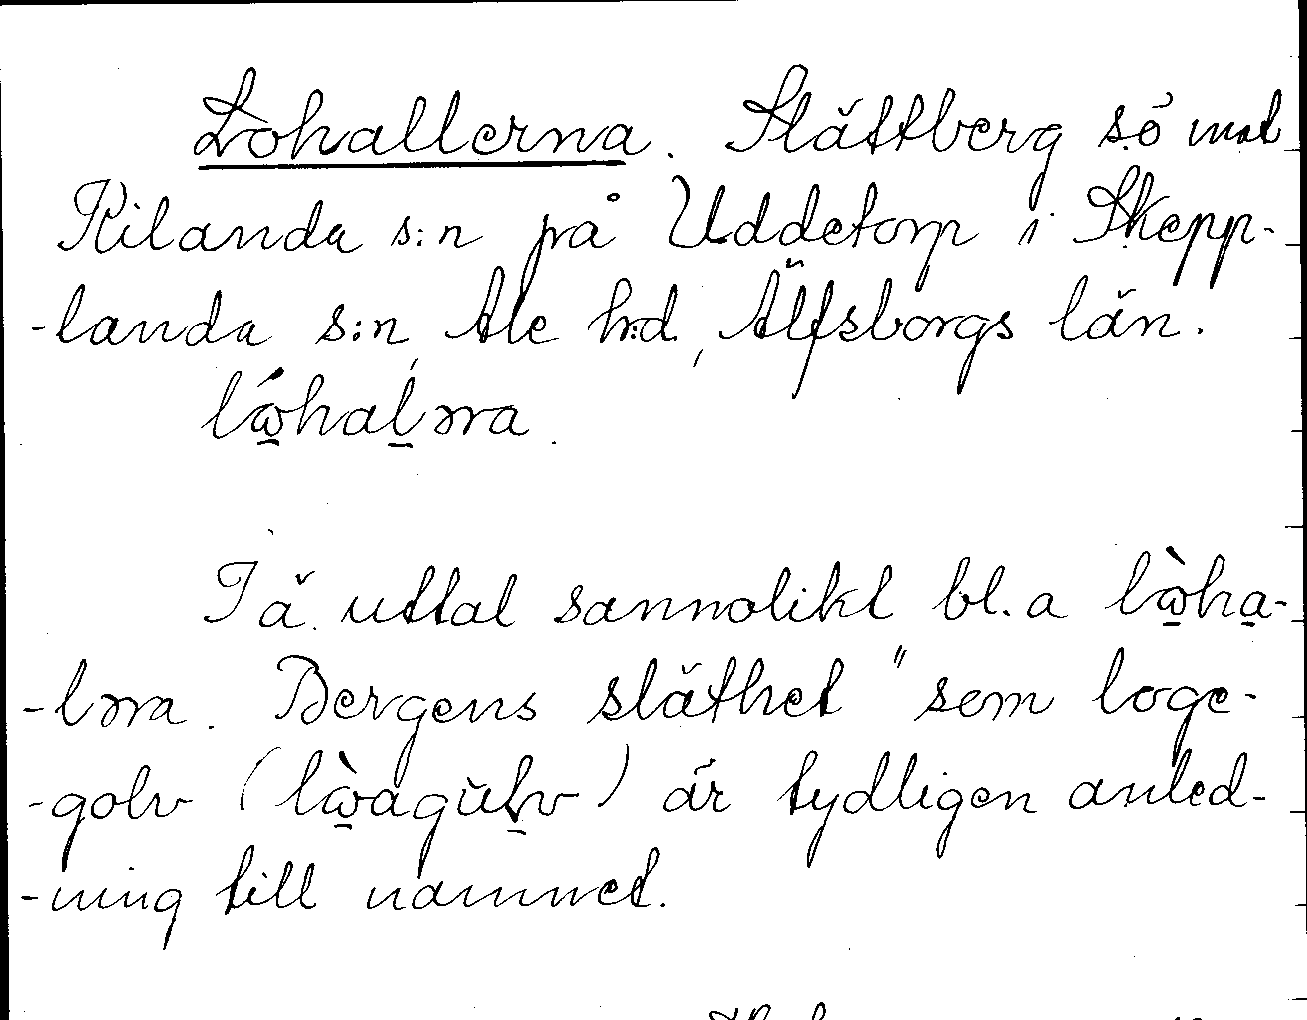 Lohallerna. Slättberg s.ö mot
Kilanda s:n på Uddetorp i Skepp-
-landa s:n, Ale h:d, Älfsborgs län.
lώ̱haḻəra.
Tä. uttal sannolikt bl. a lὼ̱ha̱-
-ləra. Bergens släthet "som loge-
-golv (lὼ̱agùḻv) är tydligen anled-
-ning till namnet.